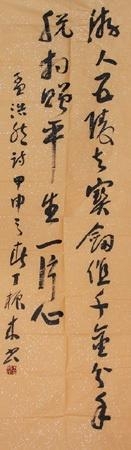 游人五陵去寶劍值千金分手
脱相赠平生一片心
孟浩然诗甲申之春丁